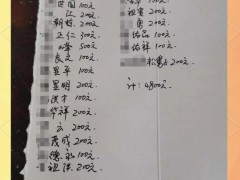 世国100元
弘200元
朝辉200元
正仁300元
小峰500元
良文100元
显平100元
显明200元
洪才100元
华祥200元
云200元
茂成200元
德永100元
祖洪200元
华100元
祖容200元
勇200元
佑品100元
佑祥100元
200元
计:4800元